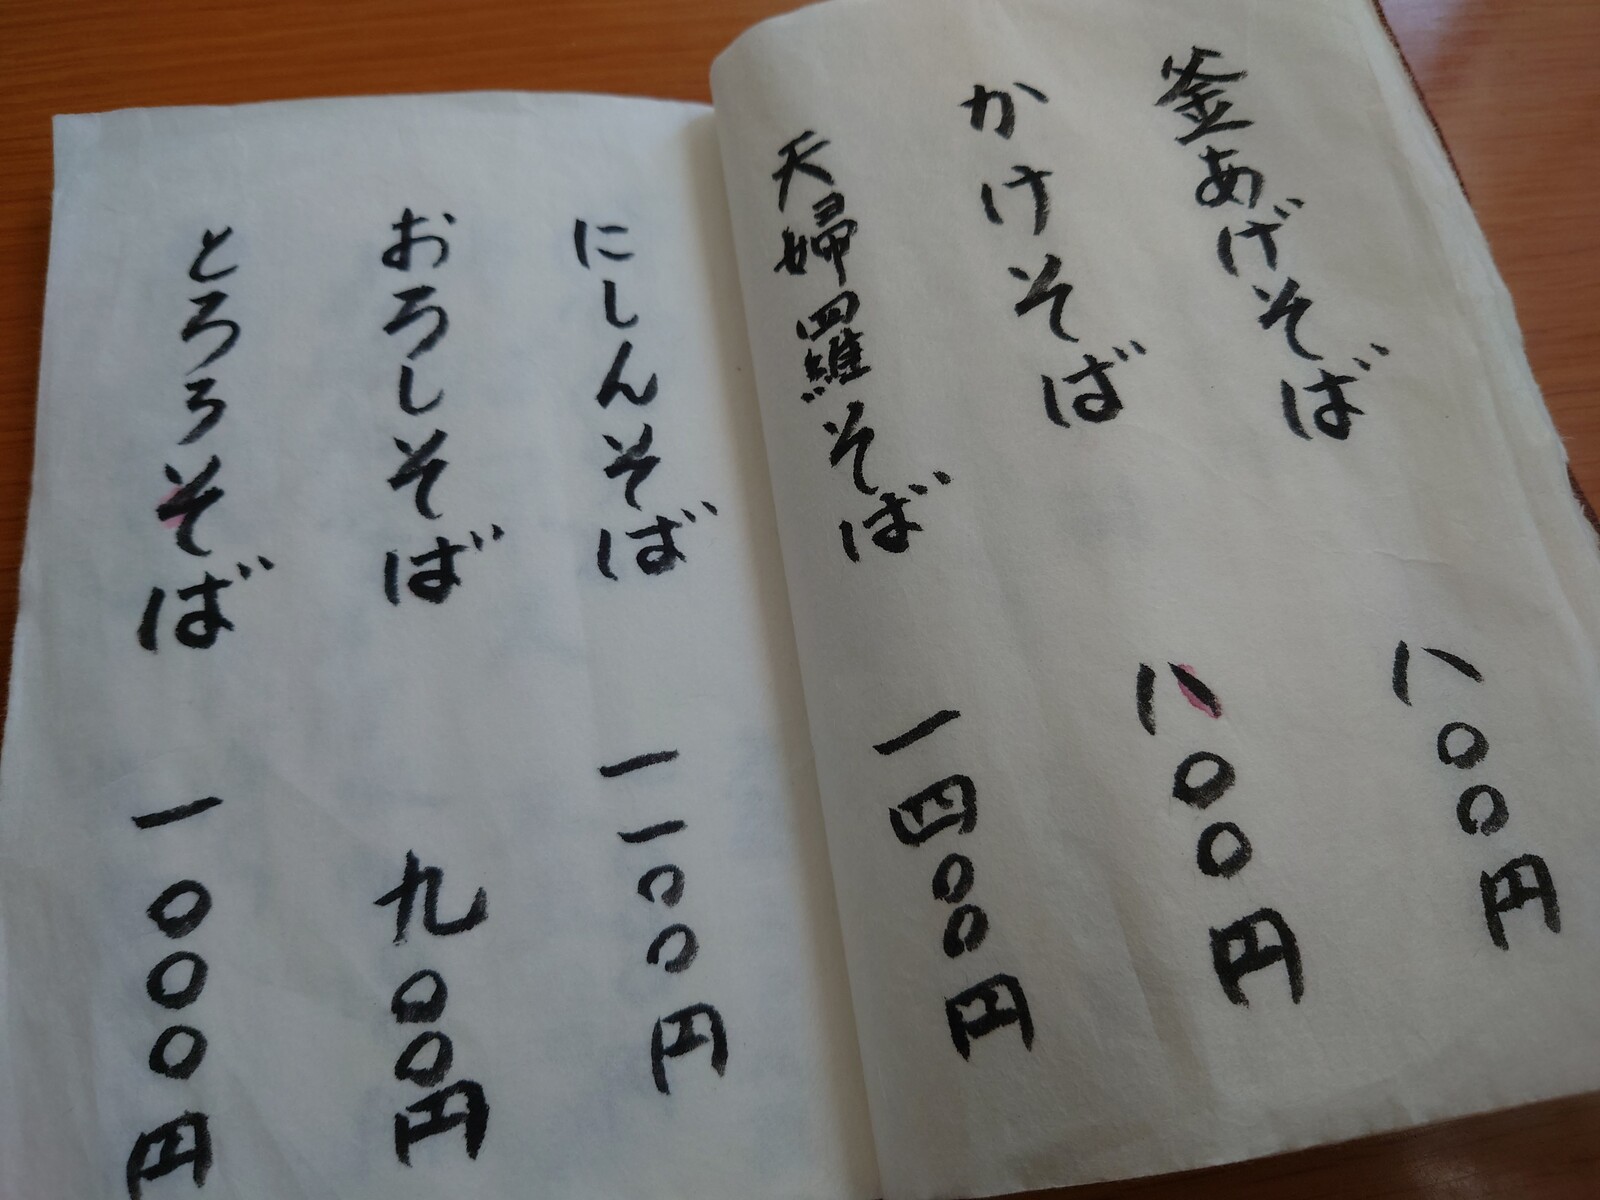 釜あげそば 八〇〇円
かけそば 八〇〇円
天婦羅そば 一四〇〇円
にしんそば 一一〇〇円
おろしそば 九〇〇円
とろろそば 一〇〇〇円